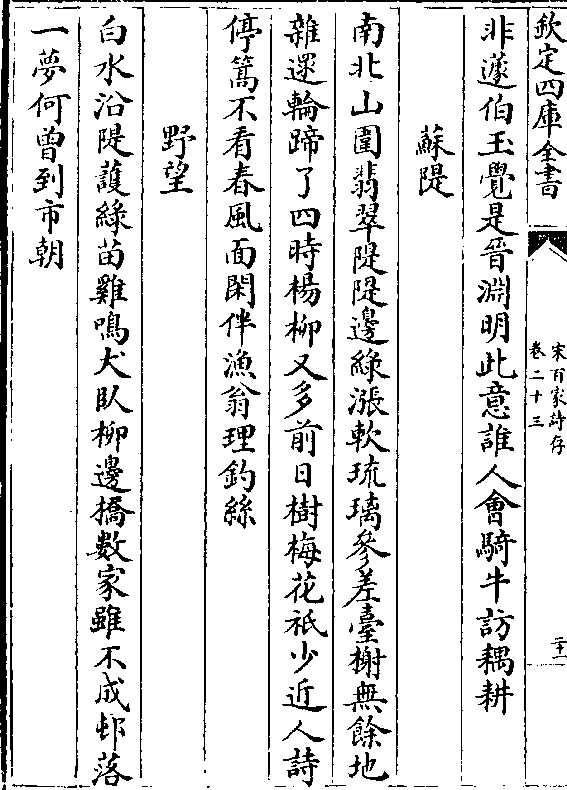 欽定四庫全書
宋百家詩存
卷二十三
二十
非蘧伯玉覺是晉淵明此意誰人會騎牛訪耦耕
蘇隄
南北山圍翡翠隄隄邊綠漲軟琉璃參差臺榭無餘地
雜遝輪蹄了四時楊柳又多前日樹梅花祇少近人詩
停篙不看春風面閑伴漁翁理釣絲
野望
白水沿隄護綠苗雞鳴犬臥柳邊橋數家雖不成邨落
一夢何曾到市朝